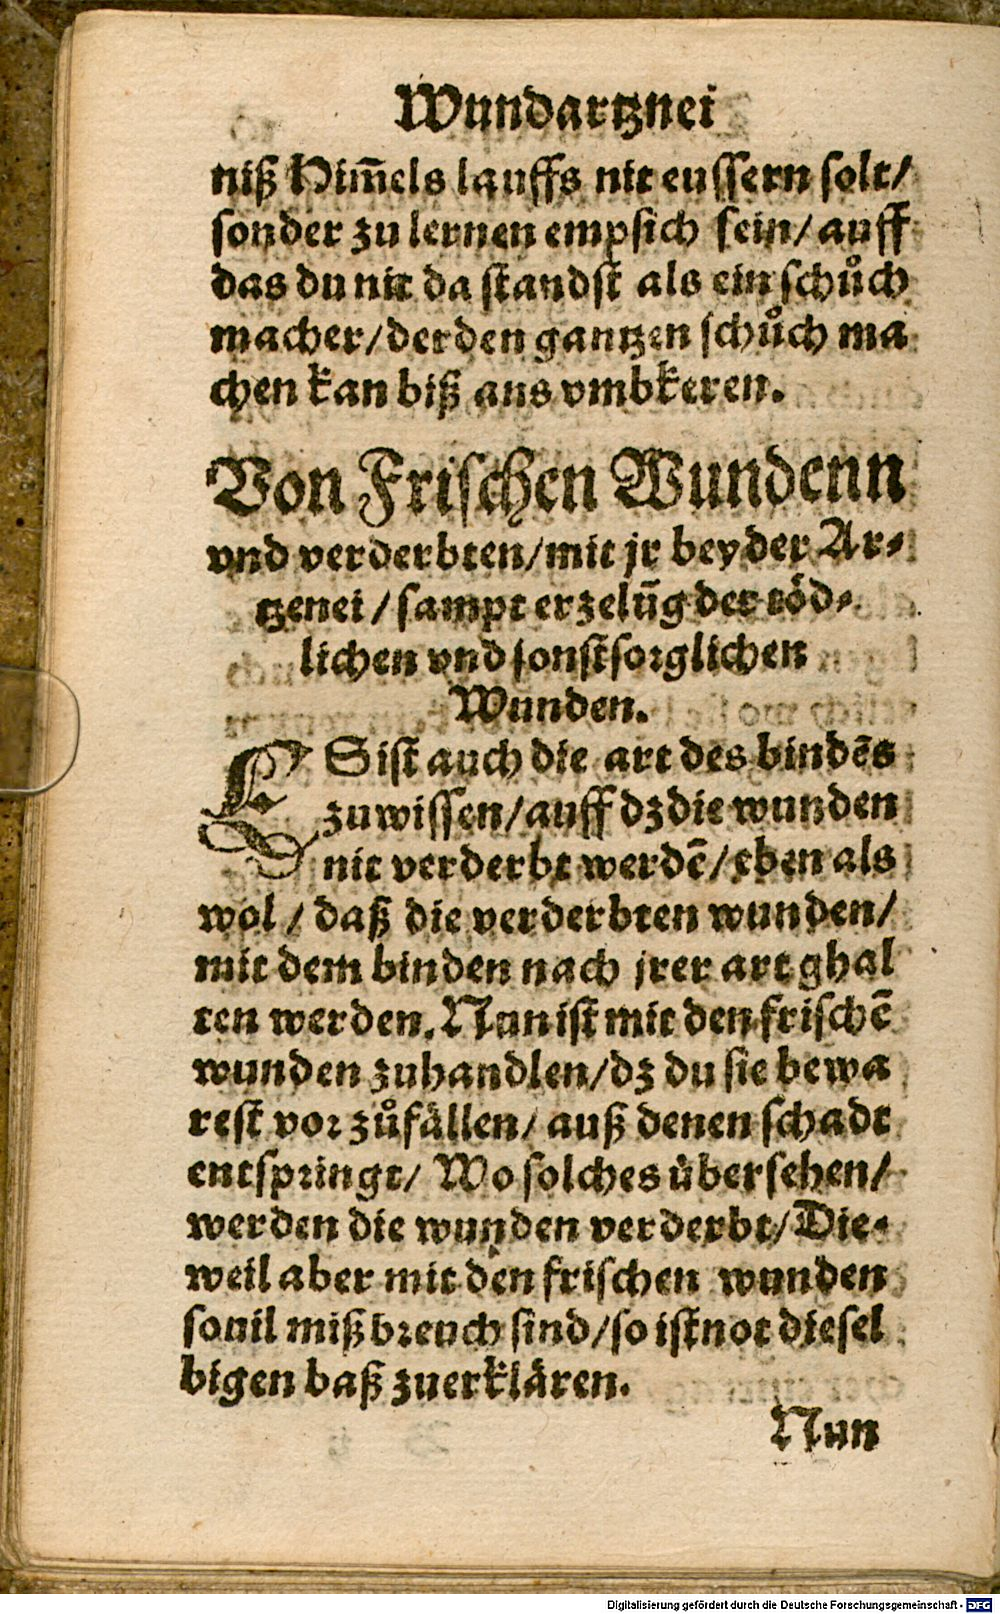 Wundartznei
niß Him̄els lauffs nit eussern solt/
sonder zu lernen empsich sein/ auff
das du nit da standst als ein schůch
macher/ der den gantzen schůch ma
chen kan biß ans vmbkeren.
Von Frischen Wundenn
vnd verderbten/ mit jr beyder Ar⸗
tzenei / sampt erzelūg der töd⸗
lichen vnd sonst sorglichen
Wunden.
ES ist auch die art des bindēs
zuwissen/ auff dz die wunden
nit verderbt werdē/ eben als
wol / daß die verderbten wunden/
mit dem binden nach jrer art ghal
ten werden. Nun ist mit den frischē
wunden zuhandlen/ dz du sie bewa
rest vor zůfällen/ auß denen schadt
entspringt/ Wo solches übersehen/
werden die wunden verderbt/ Die⸗
weil aber mit den frischen wunden
souil mißbreuch sind/ so ist not diesel
bigen baß zuerklären.
Nun
Digitalisierung gefördert durch die Deutsche Forschungsgemeinschaft - DFG